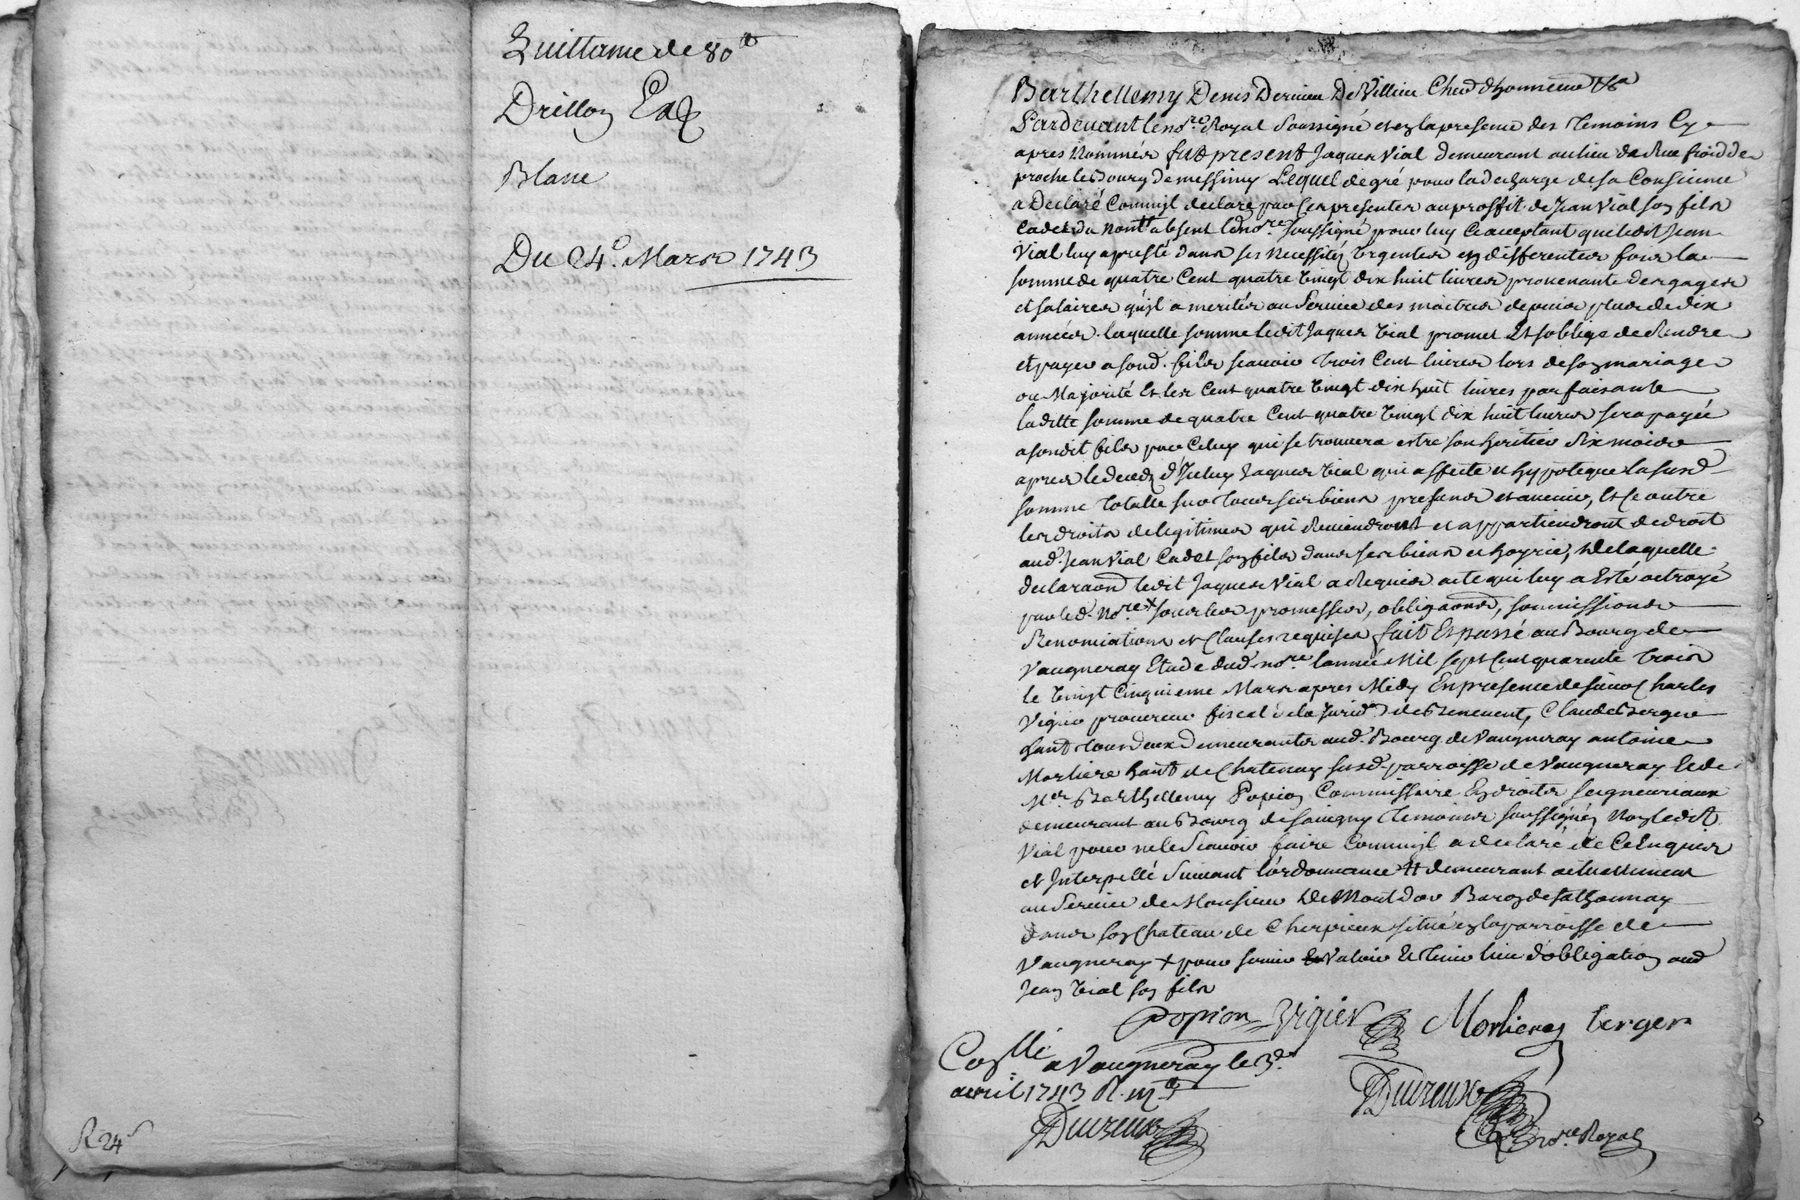 Quittance de 80 lt
Drillon
Blanc
Du 24e. Mars 1743
R 24 s
Barthellemy Denis Dervieu De Villieu Cher d'honneur &a
Pardevant le nore. Royal Soussigné et en la presence des temoins Cy
apres Nommés fut present Jaques Vial demeurant au lieu de Rue froidde
proche le Bourg de messimy Lequel de gré pour la decharge de sa Consience
a Declaré Comm'il declare par Ces presentes au proffit de Jean Vial son fils
Cadet du nom absent led. nore. soussigné pour luy Ce acceptant que ledit Jean
Vial luy a presté dans ses necessités Urgentes en differentes fois la
somme de quatre Cent quatre Vingt dix huit livres provenante des gages
et salaires qu'il a merités au Service des maitres depuis plus de dix
années laquelle somme ledit Jaques Vial promet Et s'oblige de Rendre
et payer a sond. fils scavoir trois Cent livres lors de son mariage
ou Majorité Et les Cent quatre Vingt dix huit livres parfaisante
laditte somme de quatre Cent quatre Vingt dix huit livres sera payée
a sondit fils par Celuy qui se trouvera estre son heritier six mois
apres le decez d'Iceluy Jaques Vial qui affecte et hypoteque la susd.
somme totalle sur tous ses biens presens et avenir, Et Ce outre
les droits de legitimes qui Reviendront et appartiendront de droit
aud. Jean Vial Cadet son fils dans ses biens et hoyrie, De laquelle
declaraon ledit Jaques Vial a Requis acte qui luy a Esté octroyé
par led. nore + sous les promesses, obligaons, soumissions
Renonciations et Clauses requises fait Et passé au Bourg de
Vaugneray Etude dud. nore. l'année Mil sept Cent quarente trois
le Vingt Cinquieme Mars apres Midy En presence de sieur Charles
Vigier procureur fiscal de la Jurid.on de Benevent, Claude Berger
hant tous deux demeurants aud. Bourg de Vaugneray antoine
Morliere hant de Chatenay susd. parroisse de Vaugneray Et de
Mer. Barthellemy Popion Commissaire En droits seigneuriaux
demeurant au Bourg de savigny temoins soussignés Non ledit
Vial pour ne le Scavoir faire Comm'il a declaré de Ce Enquis
et Interpellé Suivant l'ordonnance # demeurant actuellement
au Service de Monsieur De Mont d'or Baron de
dans son Chateau de Cherpieux situé en la parroisse de
Vaugneray + pour servir Valoir Et tenir lieu d'obligation aud.
Jean Vial son fils
popion Vigier Morlieres berger
Conllé a Vaugneray le 3e.
avril 1743 R.
Duvreux Duvreux
nore. Royal